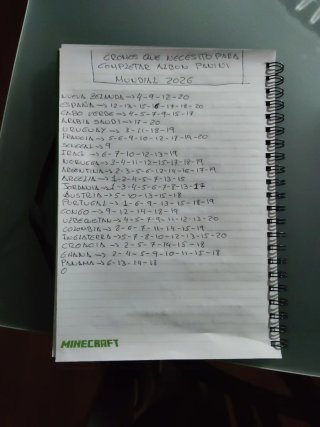 CROMOS QUE NECESITO PARA
COMPLETAR ALBON PANINI
MUNDIAL 2026
NUEVA ZELANDA → 4-9-12-20
ESPAÑA → 12-13-15-16-17-18-20
CABO VERDE → 4-5-7-9-15-17
ARABIA SAUDI → 17-20
URUGUAY → 3-11-18-19
FRANCIA → 5-6-9-10-12-17-19-20
SENEGAL → 9
IRAQ → 6-7-10-12-13-19
NORUEGA → 3-4-11-12-15-17-18-19
ARGENTINA → 2-3-5-6-12-14-16-17-19
ARGELIA → 1-2-4-5-7-13-15
JORDANIA → 1-3-4-5-6-7-8-13-17
AUSTRIA → 5-10-13-15-18
PORTUGAL → 1-6-9-13-15-18-19
CONGO → 9-12-14-18-19
UZBEQUISTAN → 4-5-7-9-11-12-13-20
COLOMBIA → 2-6-7-11-14-15-19
INGLATERRA → 5-7-8-10-12-13-15-20
CROACIA → 2-5-7-14-15-18
GHANA → 2-4-5-9-10-11-15-18
PANAMA → 6-13-14-18
0
MINECRAFT